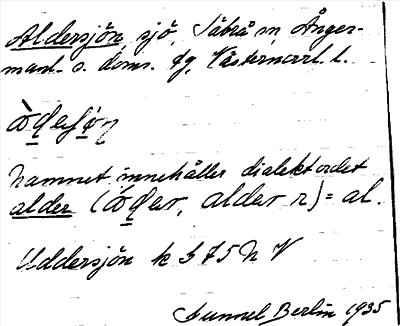 Aldersjön, sjö, Säbrå sn Ånger-
manl. s. doms. fg, Västernorrl. l.
namnet innehåller dialektordet
alder (                , alder n) = al.
Uddersjön k 375 h V
Gunnel Berlin 1935